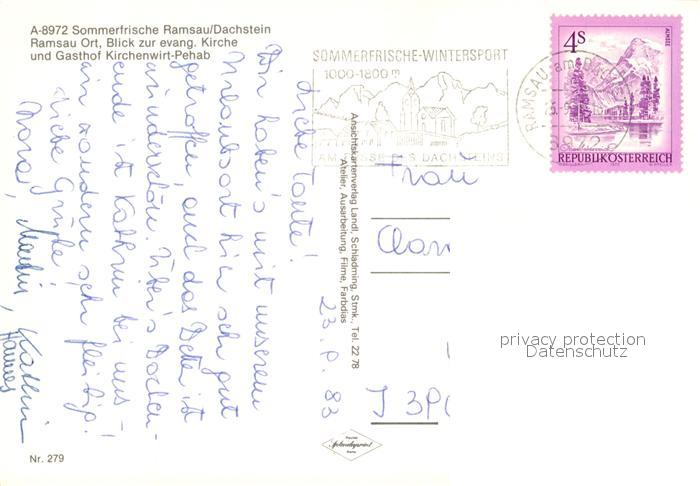 A-8972 Sommerfrische Ramsau/Dachstein
Ramsau Ort, Blick zur evang. Kirche
und Gasthof Kirchenwirt-Pehab
SOMMERFRISCHE-WINTERSPORT
1000-1800 m
AM FUSSE DES DACHSTEINS
RAMSAU am DACHSTEIN
4S
ALMSEE
REPUBLIK ÖSTERREICH
23. 8. 83
Liebe Tante!
Wir haben's mit unserem
Urlaubsort hier sehr gut
getroffen, und das Wetter ist
wunderschön. Über's Wochen-
ende ist Kathrin bei uns -
wir wandern sehr fleißig!
Liebe Grüße!
Dora, Martin, Kathrin
Hannes
Ansichtskartenverlag Landl, Schladming, Stmk., Tel. 22 78
"Atelier, Ausarbeitung, Filme, Farbdias
Frau
privacy protection
Datenschutz
Nr. 279